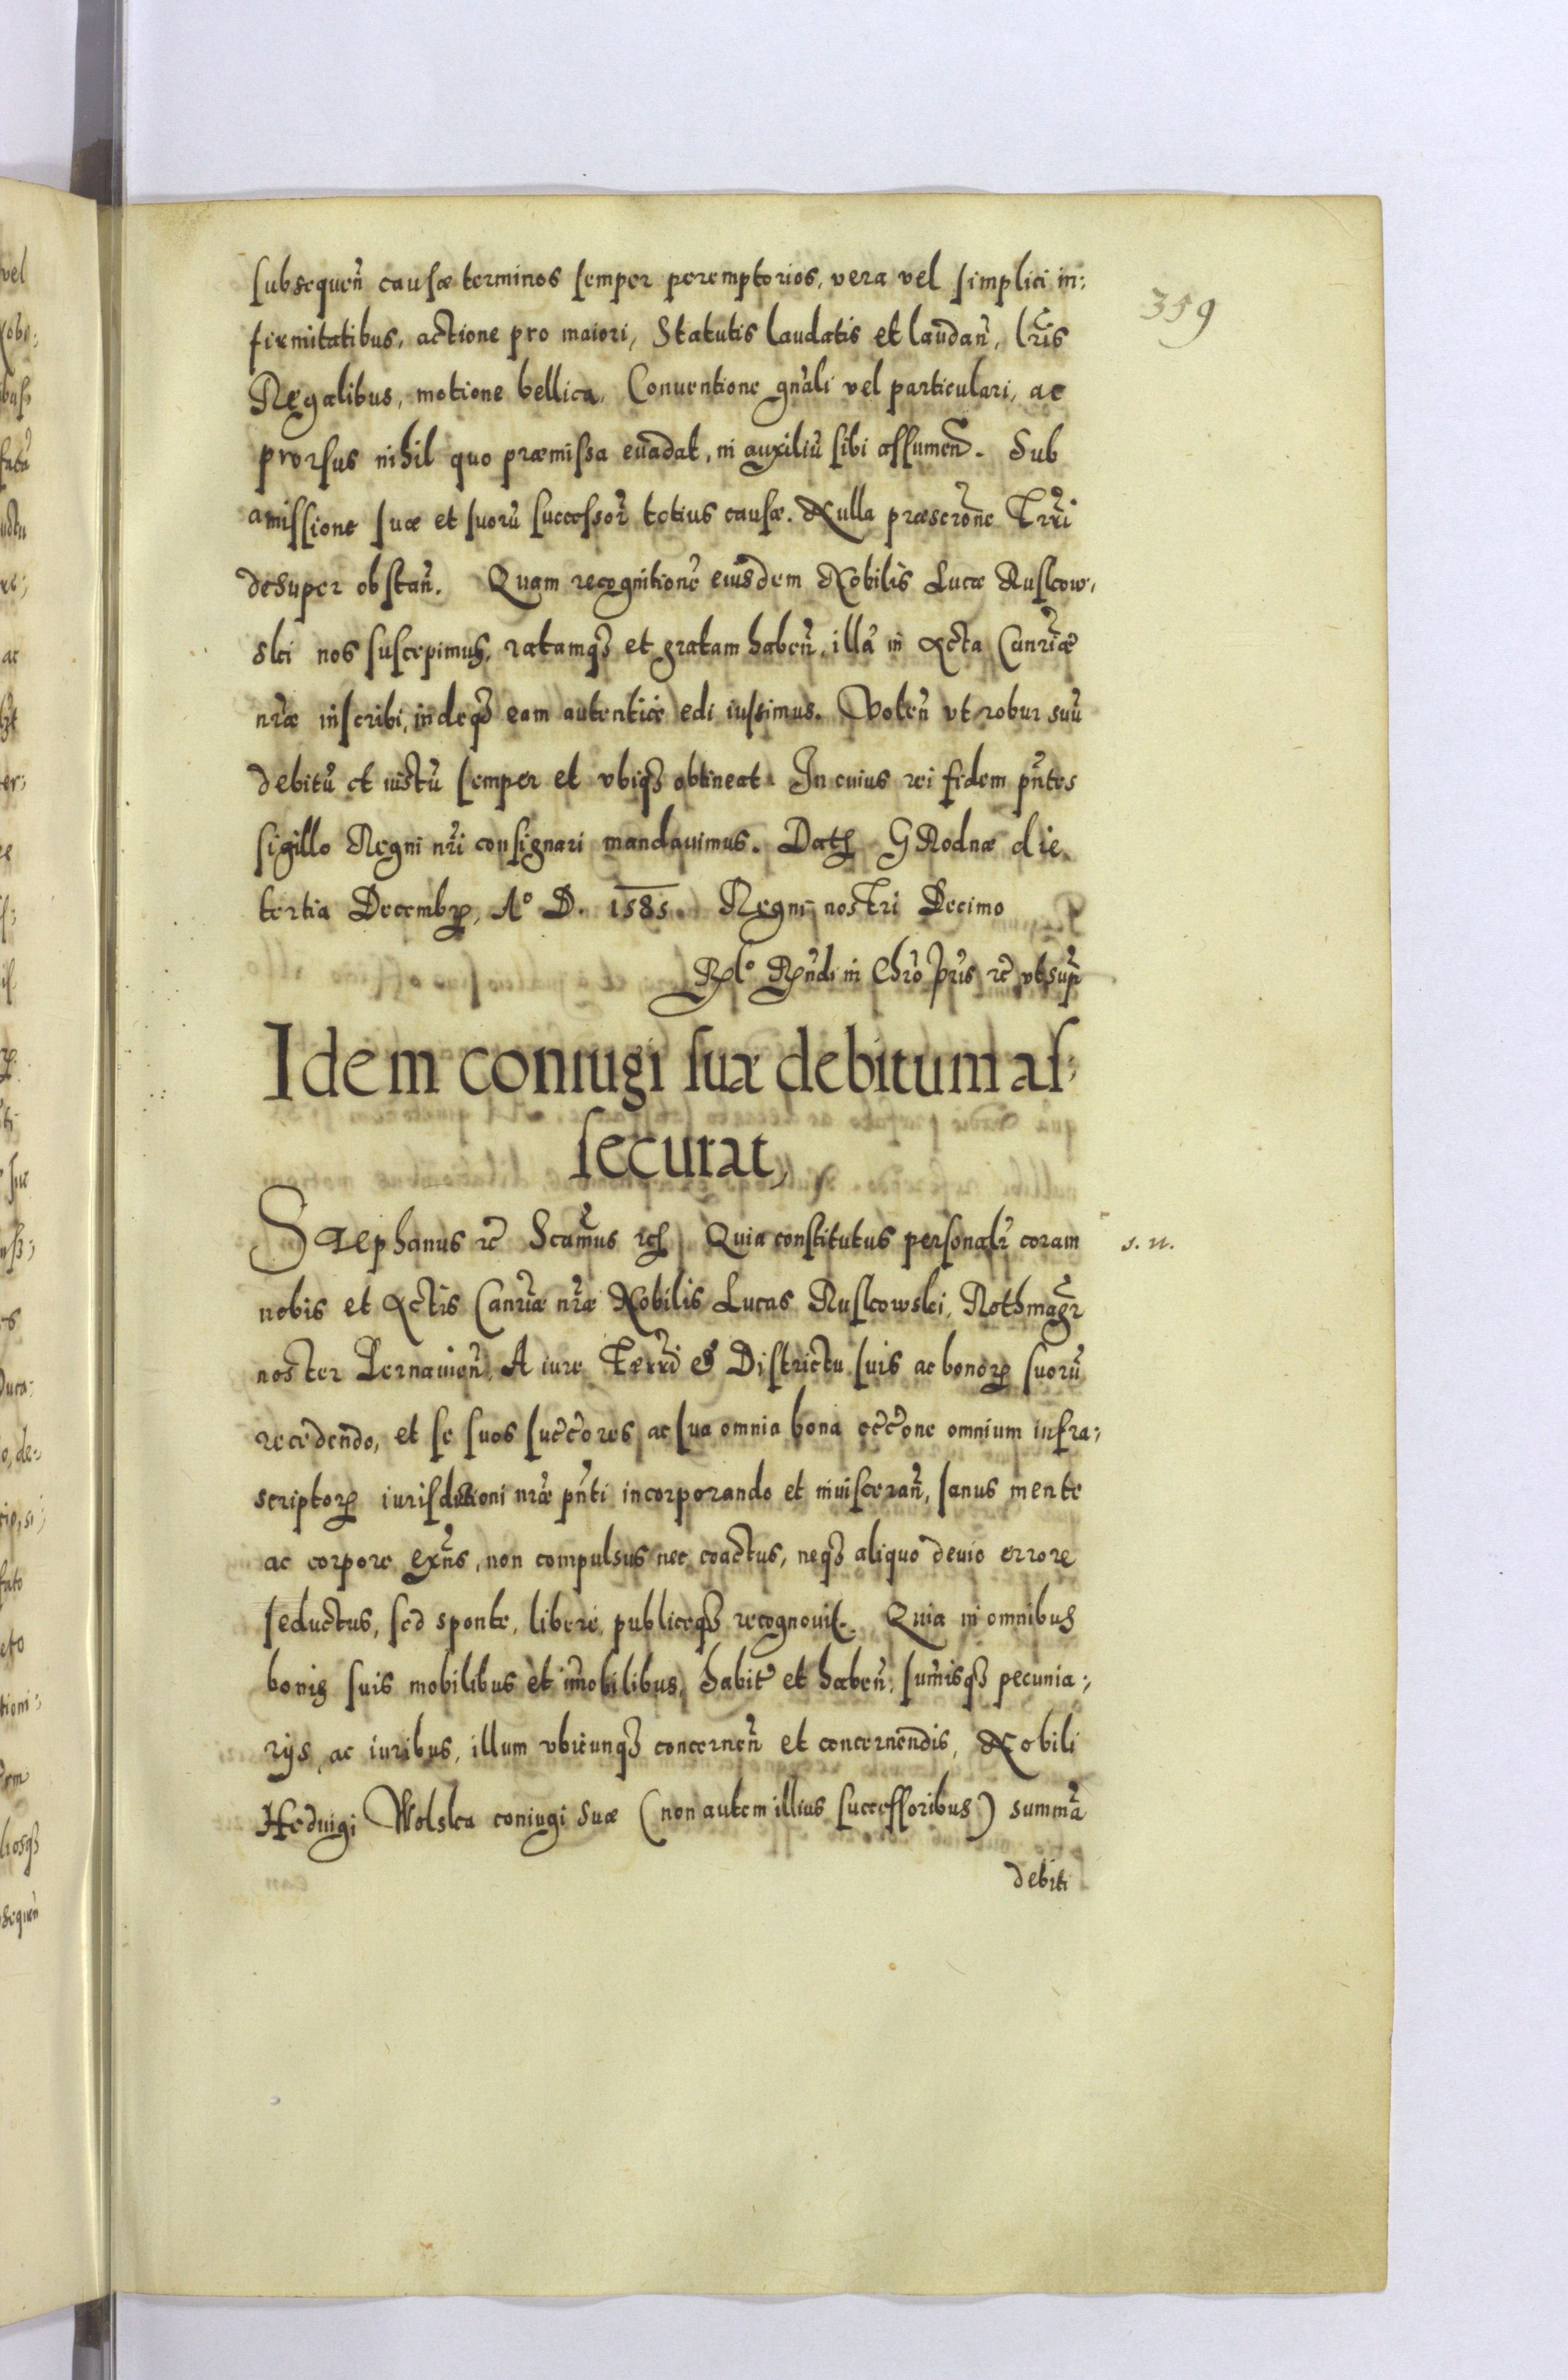 359
subsequen̄ causæ terminos semper peremptorios, vera vel simplici in:
firmitatibus, actione pro maiori, Statutis laudatis et laudan̄, lr̄is
Regalibus, motione bellica, Conuentione gn̄ali vel particulari, ac
prorsus nihil quo præmissa euadat, in auxiliū sibi assumen̄. Sub
amissione suæ et suorū successor̄ totius causæ. Nulla præscr̄one Trr̄i
desuper obstan̄. Quam recognitionē eiusdem Nobilis Lucæ Ruskow,
ski nos suscepimus, ratamqȝ et gratam haben̄, illā in Acta Canr̄iæ
nr̄æ inscribi, indeqȝ eam autentice edi iussimus. Volen̄ vt robur suū
debitū et iustū semper et vbiqȝ obtineat. In cuius rei fidem pn̄tes
sigillo Regni nr̄i consignari mandauimus. Datȝ GRodnæ die
tertia Decembrꝭ, Aº D. 1585. Regni nostri Decimo
Rlº Rn̄di in Chr̄o pr̄is rc̄ vt supr̄
Idem coniugi suæ debitum as:
securat,
Stephanus rc̄ Scam̄us rcȝ Quia constitutus personalr̄ coram
s. n.
nobis et Actis Canr̄iæ nr̄æ Nobilis Lucas Ruskowski, Rothmagr̄
noster Pernauien̄, A iure Terri & Districtu suis ac bonorꝝ suorū
recedendo, et se suos succ̄ores ac sua omnia bona occ̄one omnium infra:
scriptorꝝ iurisdictioni nr̄æ pn̄ti incorporando et inuisceran̄, sanus mente
ac corpore exn̄s, non compulsus nec coactus, neqȝ aliquo deuio errore
seductus, sed sponte, libere, publiceqȝ recognouit. Quia in omnibus
bonis suis mobilibus et im̄obilibus, habit̄ et haben̄, sum̄isqȝ pecunia:
rijs ac iuribus, illum vbicunqȝ concernen̄ et concernendis, Nobili
Heduigi Wolska coniugi suæ (non autem illius successoribus) summā
debiti